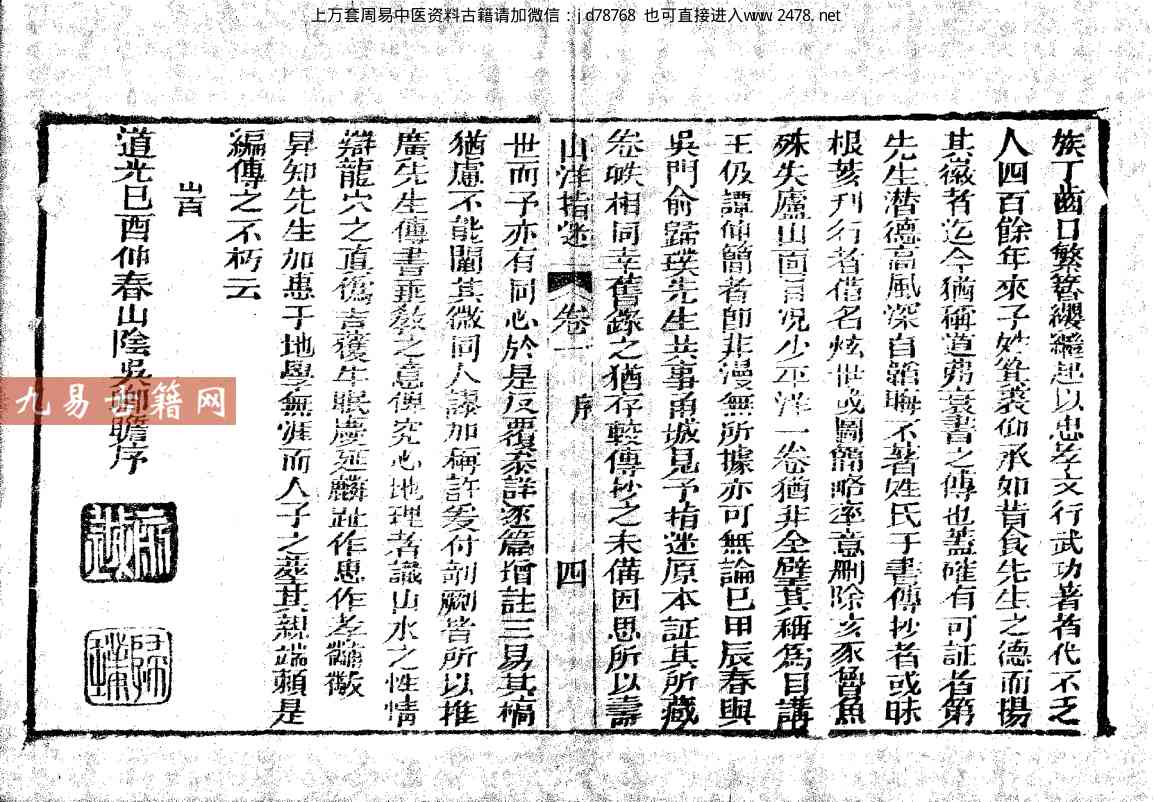 上万套周易中医资料古籍请加微信：jd78768 也可直接进入www.2478.net
族丁齒日繁簪纓繼起以忠孝文行武功著者代不乏
人四百餘年來子姓箕裘仰承如昔食先生之德而揚
其徽者迄今猶稱道弗衰書之傳也蓋確有可証者第
先生潜德高風深自韜晦不著姓氏于書傳抄者或昧
根荄刋行者借名炫世或圖簡略率意删除亥豕魯魚
殊失廬山面目况少平洋一卷猶非全璧其稱爲目講
王伋譚仰簡者卽非漫無所據亦可無論已甲辰春與
吳門俞歸璞先生共事甬城見予指迷原本証其所藏
卷帙相同幸舊錄之猶存較傳抄之未備因思所以壽
山洋指迷 卷一 序 四
世而予亦有同心於是反覆叅詳逐篇增註三易其稿
猶慮不能闡其微同人謬加稱許爰付剞劂皆所以推
廣先生傳書垂敎之意俾究心地理者識山水之性情
辯龍穴之真僞吉獲牛眠慶延麟趾作忠作孝黼黻
昇知先生加惠于地學無涯而人子之葬其親端賴是
編傳之不朽云
旹
道光己酉仲春山陰吳卿瞻序
九易古籍网